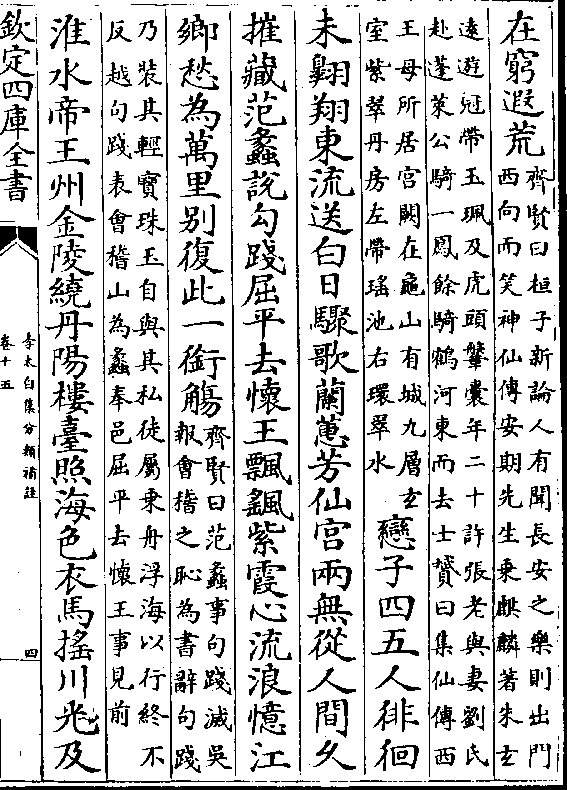 在窮遐荒
齊賢曰桓子新論人有聞長安之樂則出門
西向而笑神仙傳安期先生乗麒麟著朱玄
逺遊冠帶玉珮及虎頭鞶囊年二十許張老與妻劉氏
赴蓬萊公騎一鳳餘騎鶴河東而去士贇曰集仙傳西
王母所居宫闕在龜山有城九層玄
室紫翠丹房左帶瑶池右環翠水
戀子四五人徘徊
未翺翔東流送白日驟歌蘭蕙芳仙宫兩無從人間久
摧藏范蠡説勾踐屈平去懷王飄颻紫霞心流浪憶江
鄉愁為萬里别復此一銜觴
齊賢曰范蠡事句踐滅吳
報會稽之恥為書辭句踐
乃裝其輕寳珠玉自與其私徒屬乗舟浮海以行終不
反越句踐表會稽山為蠡奉邑屈平去懷王事見前
淮水帝王州金陵繞丹陽樓臺照海色衣馬搖川光及
欽定四庫全書
李太白集分類補註
卷十五
四